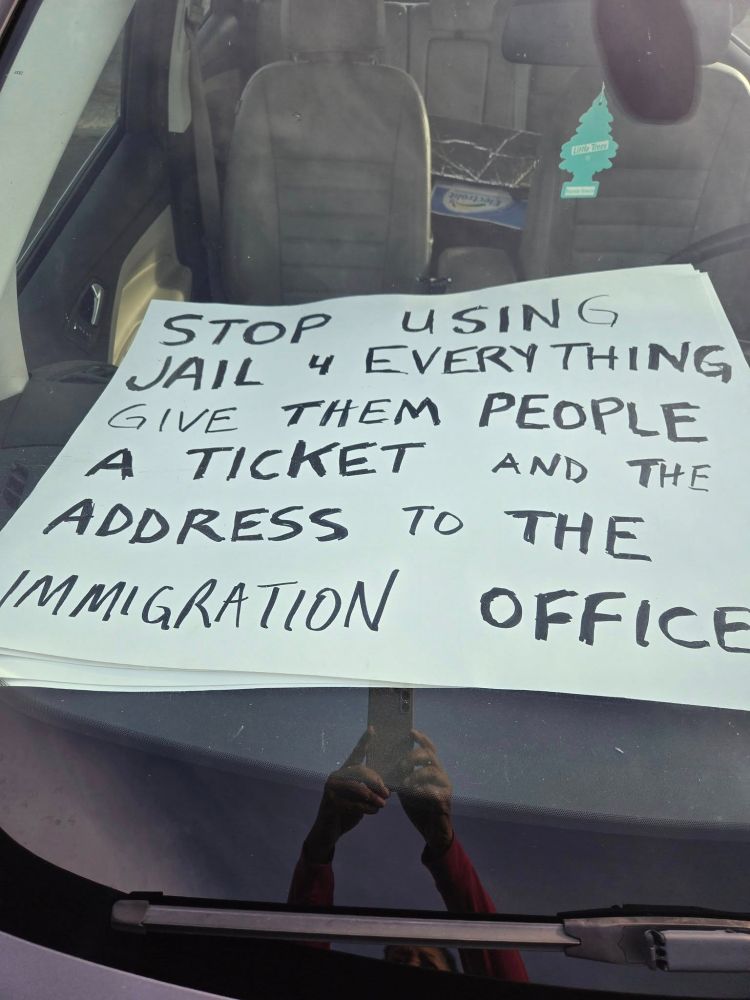 Little Trees
STOP USING
JAIL 4 EVERYTHING
GIVE THEM PEOPLE
A TICKET AND THE
ADDRESS TO THE
IMMIGRATION OFFICE